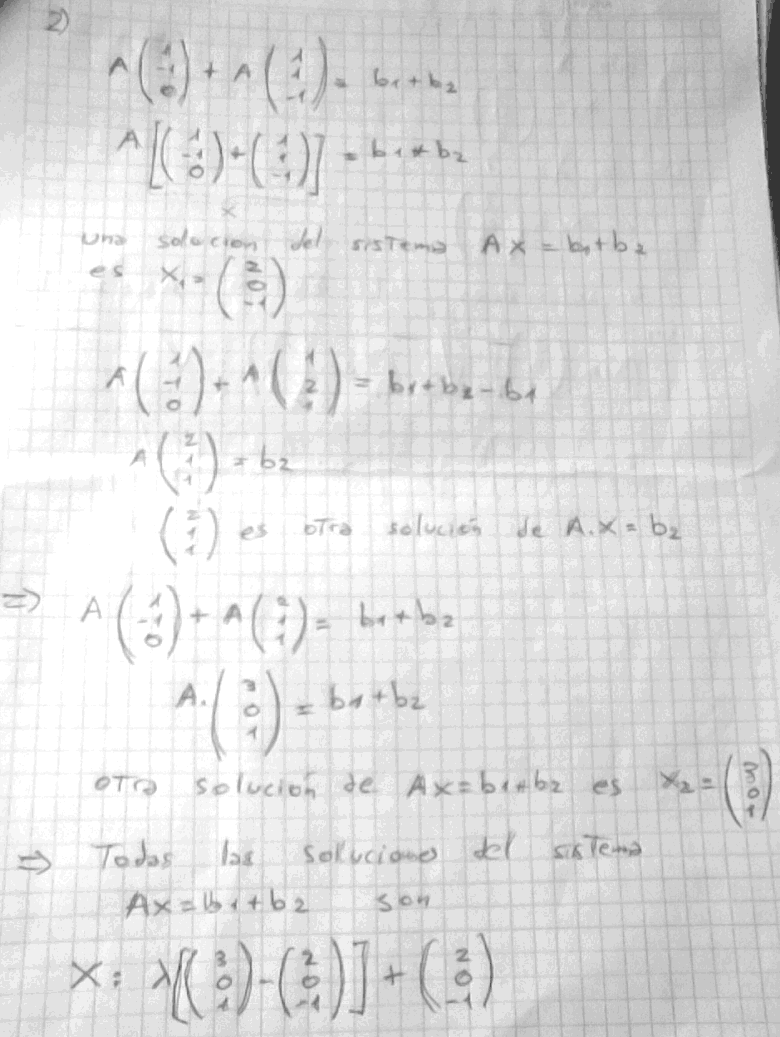 2)
A(1 -1 0) + A(1 1 -1) = b1+b2
A[(1 -1 0)+(1 1 -1)] = b1+b2
x
una solucion del sistema Ax = b1+b2
es X1=(2 0 -1)
A(1 -1 0) + A(1 2 1) = b1+b2-b1
A(2 1 1) = b2
(2 1 1) es otra solución de A.x = b2
=> A(1 -1 0) + A(2 1 1) = b1+b2
A.(3 0 1) = b1+b2
otra solución de Ax=b1+b2 es X2=(3 0 1)
=> Todas las soluciones del sistema
Ax=b1+b2 son
X: λ[(3 0 1)-(2 0 -1)] + (2 0 -1)